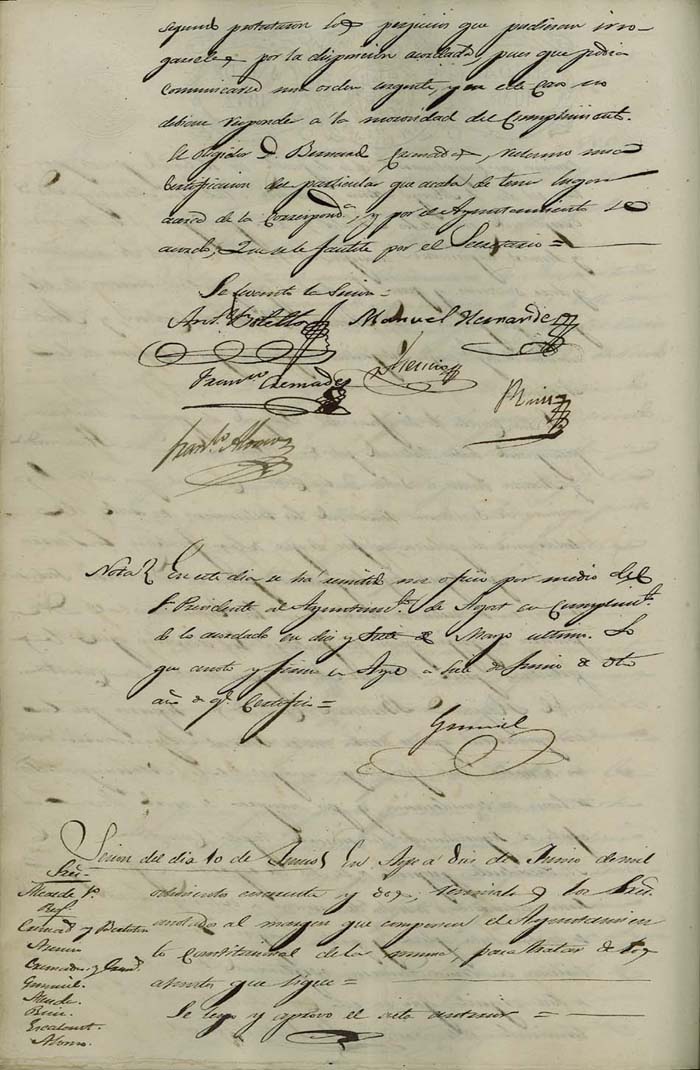 protestaron los perjuicios que pudieran irro-
garsele por la disposicion acordada, pues que podia
comunicarse una orden urgente, y en este caso no
debian responde a la morosidad del Cumplimient.
El Regidor D. Bernard Cremades, reclamo una
Certificacion del particular que acaba de tener lugar
acerca de la Correspond.a, y por el Ayuntamiento se
acordo, Que se le facilite por el Secretario =
Se levanto la Sesion =
Ant.o Botella Manuel Hernandez
Fran.co Cremades
Ruiz
Fran.co Alonso
Nota En este dia se ha remitido un oficio por medio del
S. Presidente al Ayuntam.to de Agost en Cumplim.to
de lo acordado en dies y siete de Mayo ultimo. Lo
que anoto y firmo en Aspe a siete de Junio de dho
año de q.e Certifico =
Sesion del dia 10 de Junio En Aspe a dies de Junio de mil
Sres.
Alcalde 1.o ochocientos cincuenta y dos, reunidos los Sres.
anotados al margen que componen el Ayuntamien
to Constitucional de la misma, para tratar de los
asuntos que sigue =
Se leyo y aprovo el acta anterior =
Cremades y Botella
Ruiz
Escalant.
Alonso.